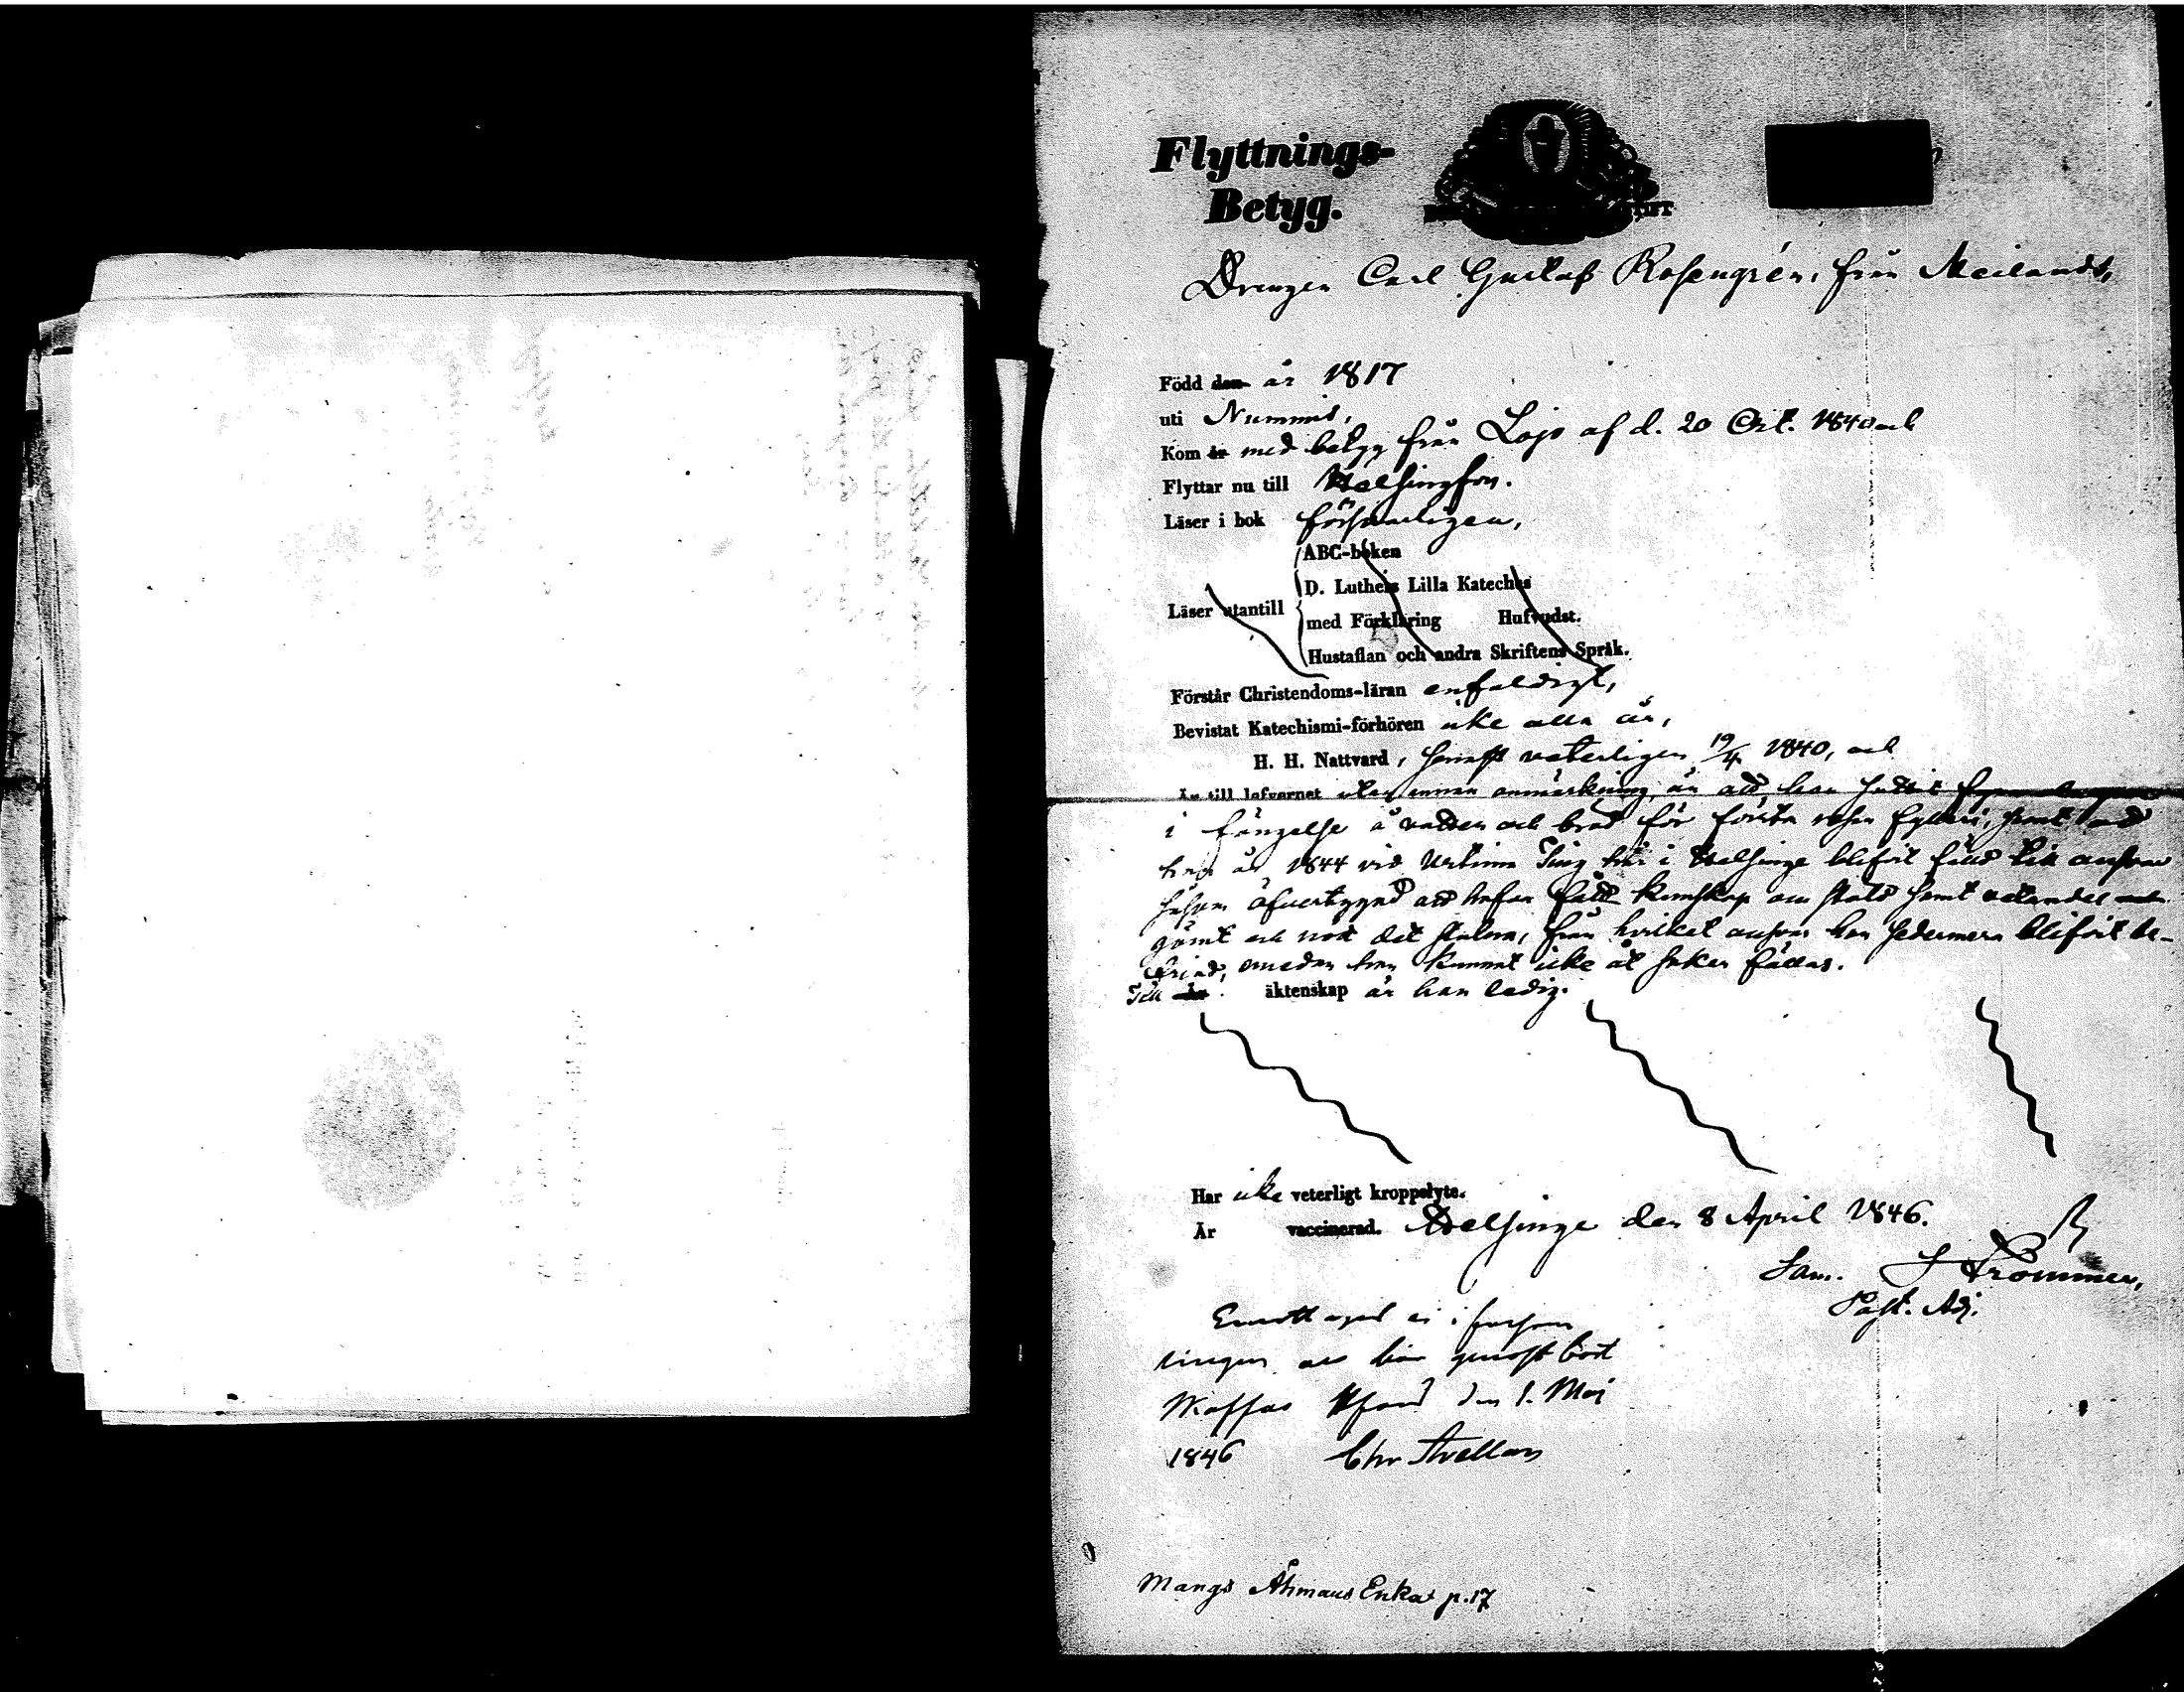 Flyttnings-
Betyg.
Drengen Carl Gustaf Rosengrén, från Meilands,
Född den år 1817
uti Nummis,
Kom år med betyg från Lojo af d. 20 Oct. 1840 och
Flyttar nu till Helsingfors.
Läser i bok försvarligen,
ABC-boken
D. Luthers Lilla Kateches
Läser utantill
med Förklaring Hufvudst.
Hustaflan och andra Skriftens Språk.
Förstår Christendoms-läran enfaldigt,
Bevistat Katechismi-förhören icke alla år,
H. H. Nattvard, senast veterligen 19/4 1840, och
Är till lefvernet utan annan anmärkning, än att han suttit
i fängelse å vatten och bröd för första resan fylleri, samt att
han år 1844 vid Urtima Ting här i Helsinge blifvit fäld till ansvar
såsom öfvertygad att hafva fått kunskap om stöld samt vetandes
gömt och nott det stulna, från hvilket ansvar han sedermera blifvit be-
friad, emedan han kunnat icke åt saken fällas.
Till äktenskap är han ledig.
Har icke veterligt kroppslyte.
Är vaccinerad. Helsinge den 8 April 1846.
Sam. Strömmer,
Past. Adj.
Emottaget i
lingen och har genast bort
den 1. Maj
1846 Chr Avellan
Mangs Åhmans Enka p. 17